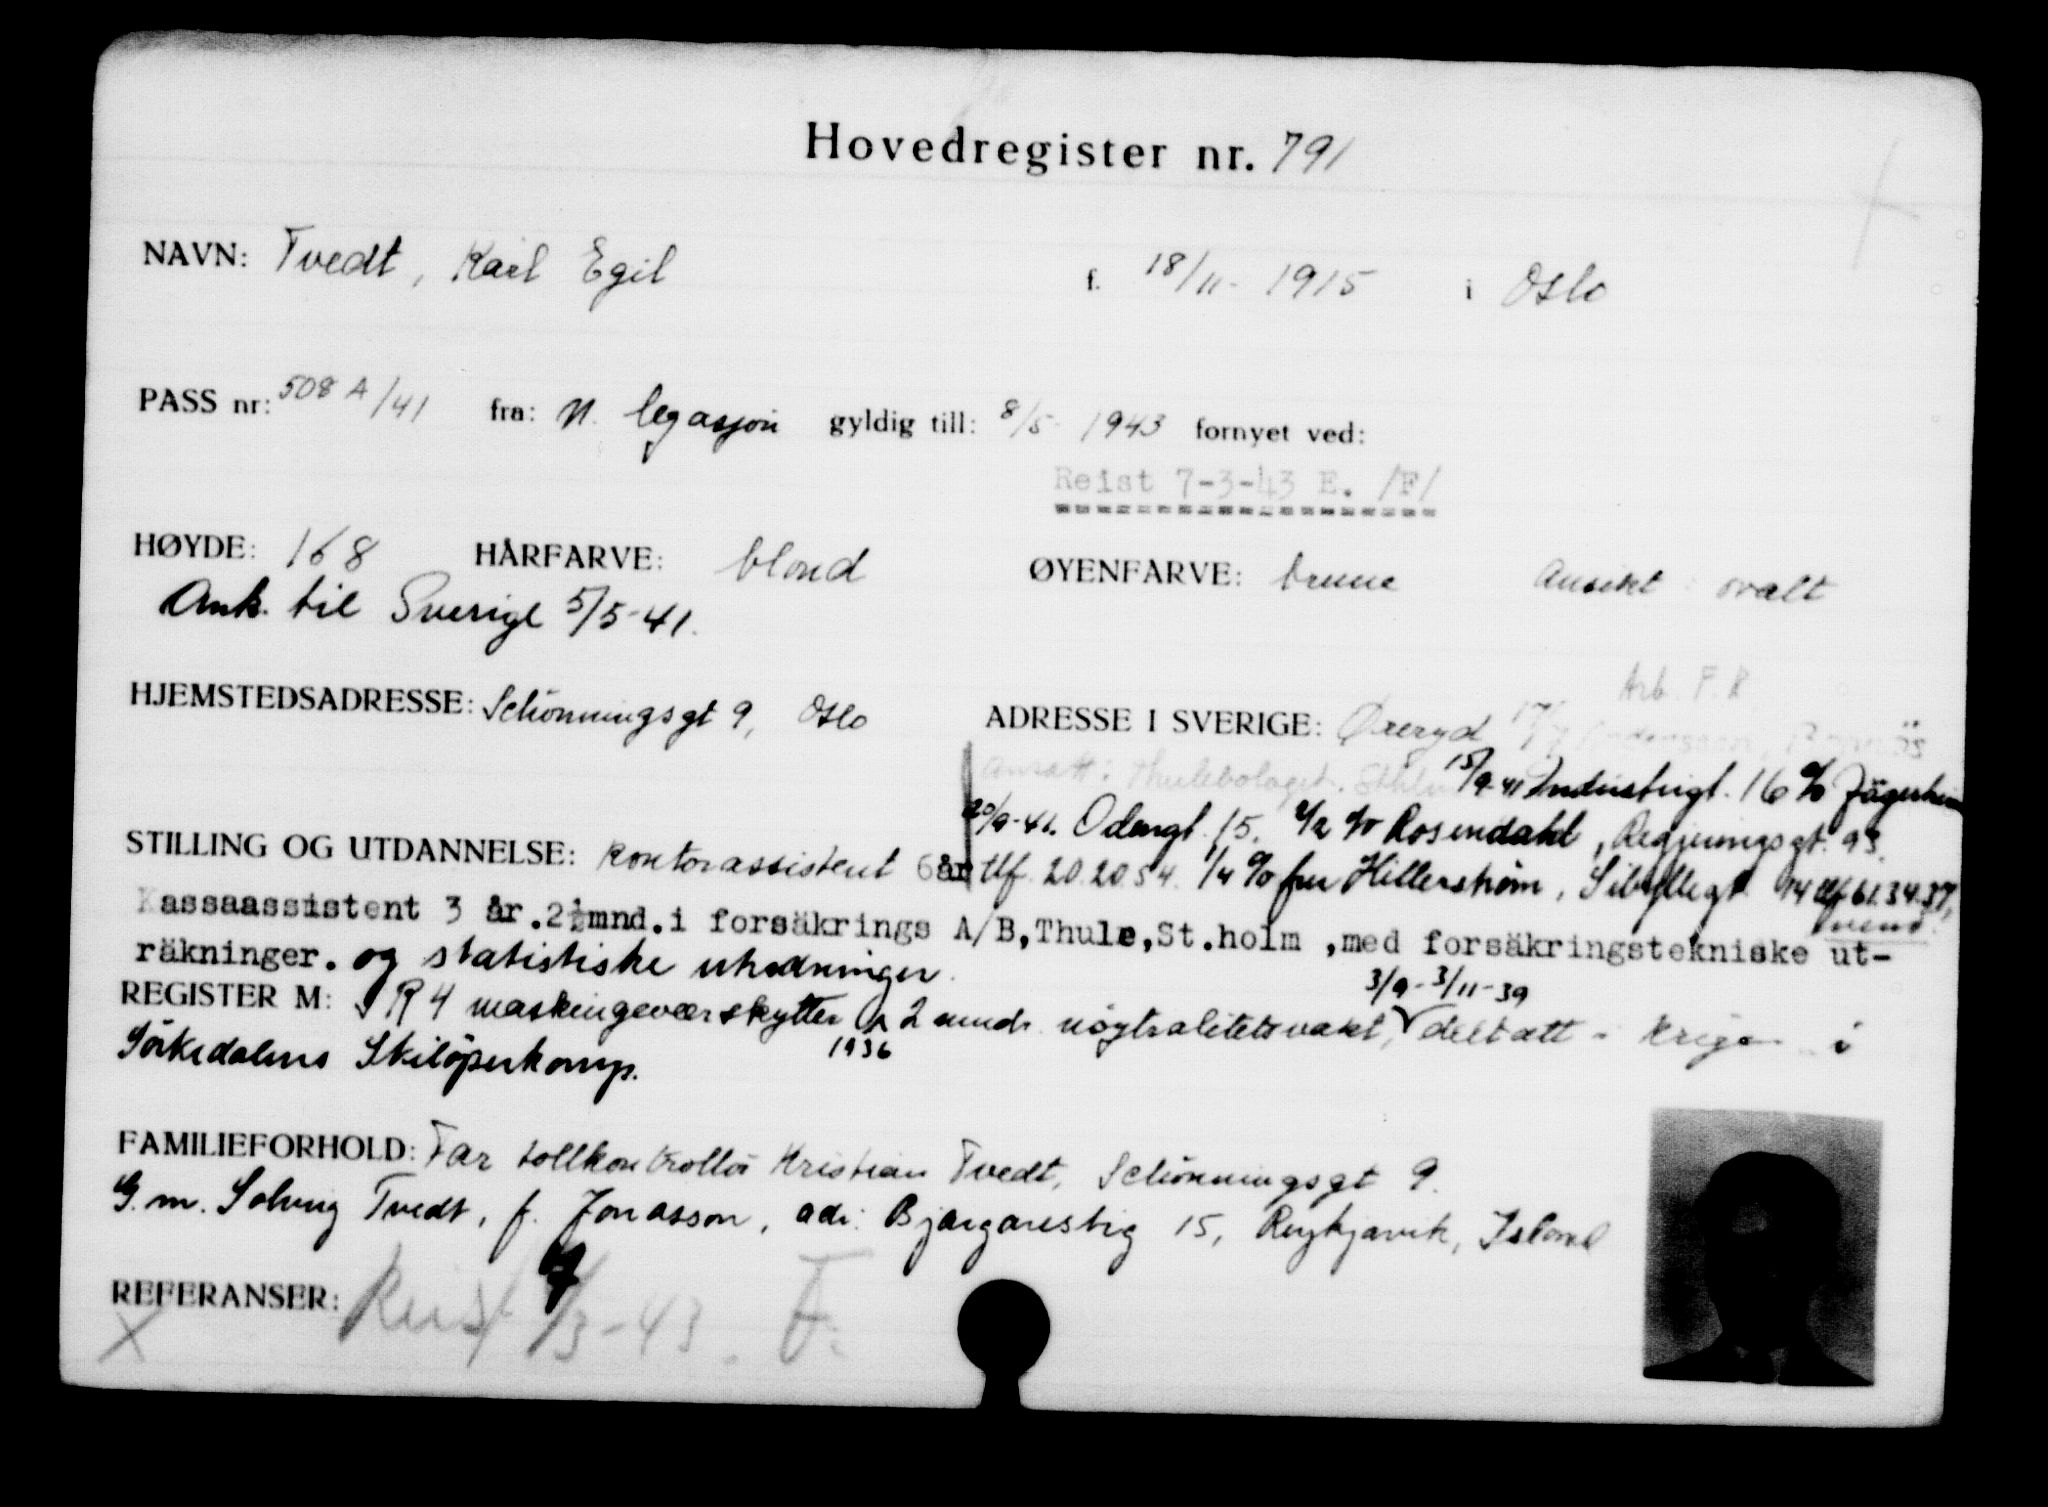 Hovedregister nr. 791
NAVN: Tvedt, Karl Egil f. 18/11- 1915 i Oslo
PASS nr: 508 A/41 fra: N. legasjon gyldig till: 8/5- 1943 fornyet ved:
Reist 7-3-43 E. /F/
HØYDE: 168 HÅRFARVE: blond ØYENFARVE: brune Ansikt: ovalt
Ank. til Sverige 5/5-41.
Arb. F. R
HJEMSTEDSADRESSE: Schönningsgt 9, Oslo ADRESSE I SVERIGE: Öreryd
Ansatt: Thulebolaget. Sthlm 15/9-41 Industrigt. 16 c/o Jägerheim
20/9-41. Odengt. 15. c/o Rosendahl, Regjeringsgt. 93.
STILLING OG UTDANNELSE: Kontorassistent 6 år tlf. 20.20.54. 1/4 c/o fru Hillerström, Sibyllegt 14 tlf 61.34.37,
Kassaassistent 3 år.2½mnd.i forsäkrings A/B,Thule,St.holm ,med forsäkringstekniske ut-
räkninger. og statistiske utredninger.
3/9-3/11-39
REGISTER M: IR 4 maskingeværskytter 2 mndr. nöytralitetsvakt, deltatt i krigen i
1936
Sörkedalens Skilöperkomp.
FAMILIEFORHOLD: Far tollkontrollör Kristian Tvedt, Schönningsgt 9.
G. m. Solveig Tvedt, f. Jonasson, adr. Bjargarestig 15, Reykjavik, Island
REFERANSER: Reist 7/3-43. F.